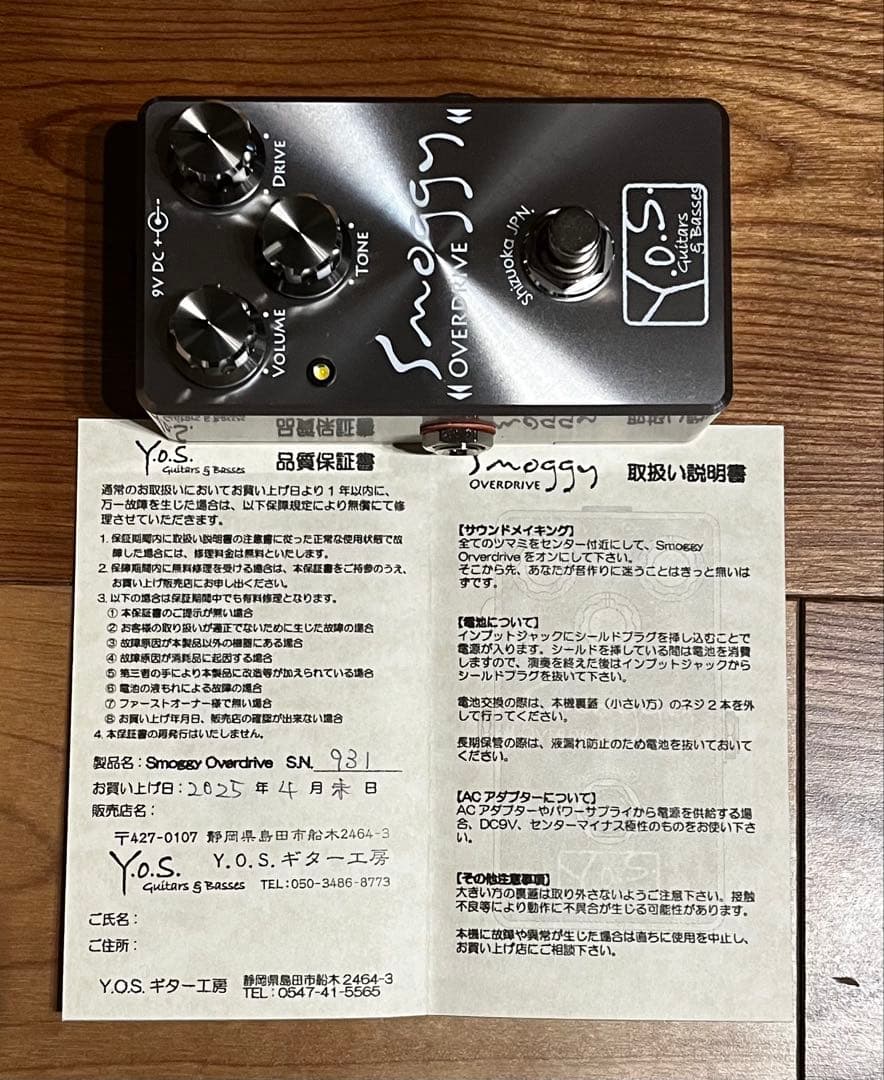 9V DC
DRIVE
TONE
VOLUME
Smoggy
OVERDRIVE
Shizuoka JPN.
Y.O.S.
Guitars
& Basses
Y.O.S.
Guitars & Basses
品質保証書
通常のお取扱いにおいてお買い上げ日より1年以内に、
万一故障を生じた場合は、以下保障規定により無償にて修
理させていただきます。
1. 保証期間内に取扱い説明書の注意書に従った正常な使用状態で故
障した場合には、修理料金は無料といたします。
2. 保障期間内に無料修理を受ける場合は、本保証書をご持参のうえ、
お買い上げ販売店にお申し出ください。
3. 以下の場合は保証期間中でも有料修理となります。
① 本保証書のご提示が無い場合
② お客様の取り扱いが適正でないために生じた故障の場合
③ 故障原因が本製品以外の機器にある場合
④ 故障原因が消耗品に起因する場合
⑤ 第三者の手により本製品に改造等が加えられている場合
⑥ 電池の液もれによる故障の場合
⑦ ファーストオーナー様で無い場合
⑧ お買い上げ年月日、販売店の確認が出来ない場合
4. 本保証書の再発行はいたしません。
製品名：Smoggy Overdrive S.N. 931
お買い上げ日：2025 年 4 月 末 日
販売店名：
〒427-0107 静岡県島田市船木2464-3
Y.O.S.
Guitars & Basses
Y.O.S.ギター工房
TEL:050-3486-8773
ご氏名：
ご住所：
Y.O.S.ギター工房
静岡県島田市船木2464-3
TEL：0547-41-5565
Smoggy
OVERDRIVE
取扱い説明書
【サウンドメイキング】
全てのツマミをセンター付近にして、Smoggy
Orverdriveをオンにして下さい。
そこから先、あなたが音作りに迷うことはきっと無いは
ずです。
【電池について】
インプットジャックにシールドプラグを挿し込むことで
電源が入ります。シールドを挿している間は電池を消費
しますので、演奏を終えた後はインプットジャックから
シールドプラグを抜いて下さい。
電池交換の際は、本機裏蓋（小さい方）のネジ2本を外
して行ってください。
長期保管の際は、液漏れ防止のため電池を抜いておいて
ください。
【ACアダプターについて】
ACアダプターやパワーサプライから電源を供給する場
合、DC9V、センターマイナス極性のものをお使い下さ
い。
【その他注意事項】
大きい方の裏蓋は取り外さないようご注意下さい。接触
不良等により動作に不具合が生じる可能性があります。
本機に故障や異常が生じた場合は直ちに使用を中止し、
お買い上げ店にご相談下さい。